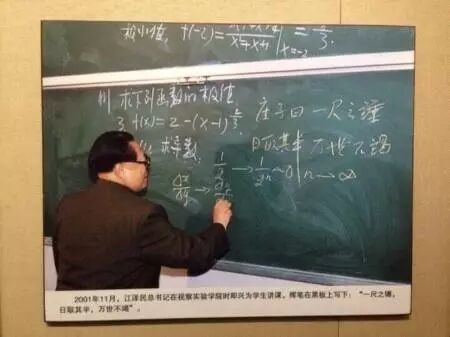 极小值, f(-2) =
x=-2
求下列函数的极值
3. f(x) = 2 - (x-1)^{2/3}
求导数
庄子曰 一尺之锤
日取其半 万世不竭
1/2 → 1/2^n → 0 | n → ∞
Δx/Δy →
2001年11月，江泽民总书记在视察实验学院时即兴为学生讲课，挥笔在黑板上写下：“一尺之锤，
日取其半，万世不竭”。